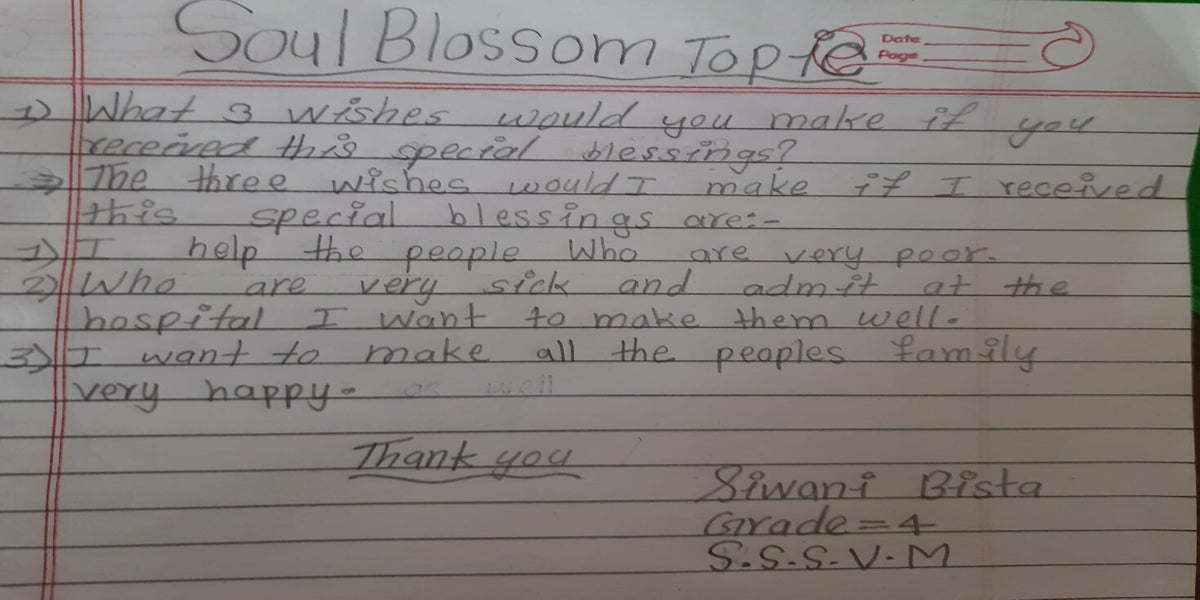 Soul Blossom Topic
Date
Page
1) What 3 wishes would you make if you
received this special blessings?
⇒ The three wishes would I make if I received
this special blessings are:-
1) I help the people Who are very poor.
2) Who are very sick and admit at the
hospital I want to make them well.
3) I want to make all the peoples family
very happy. as well
Thank you
Siwani Bista
Grade = 4
S.S.S.V.M